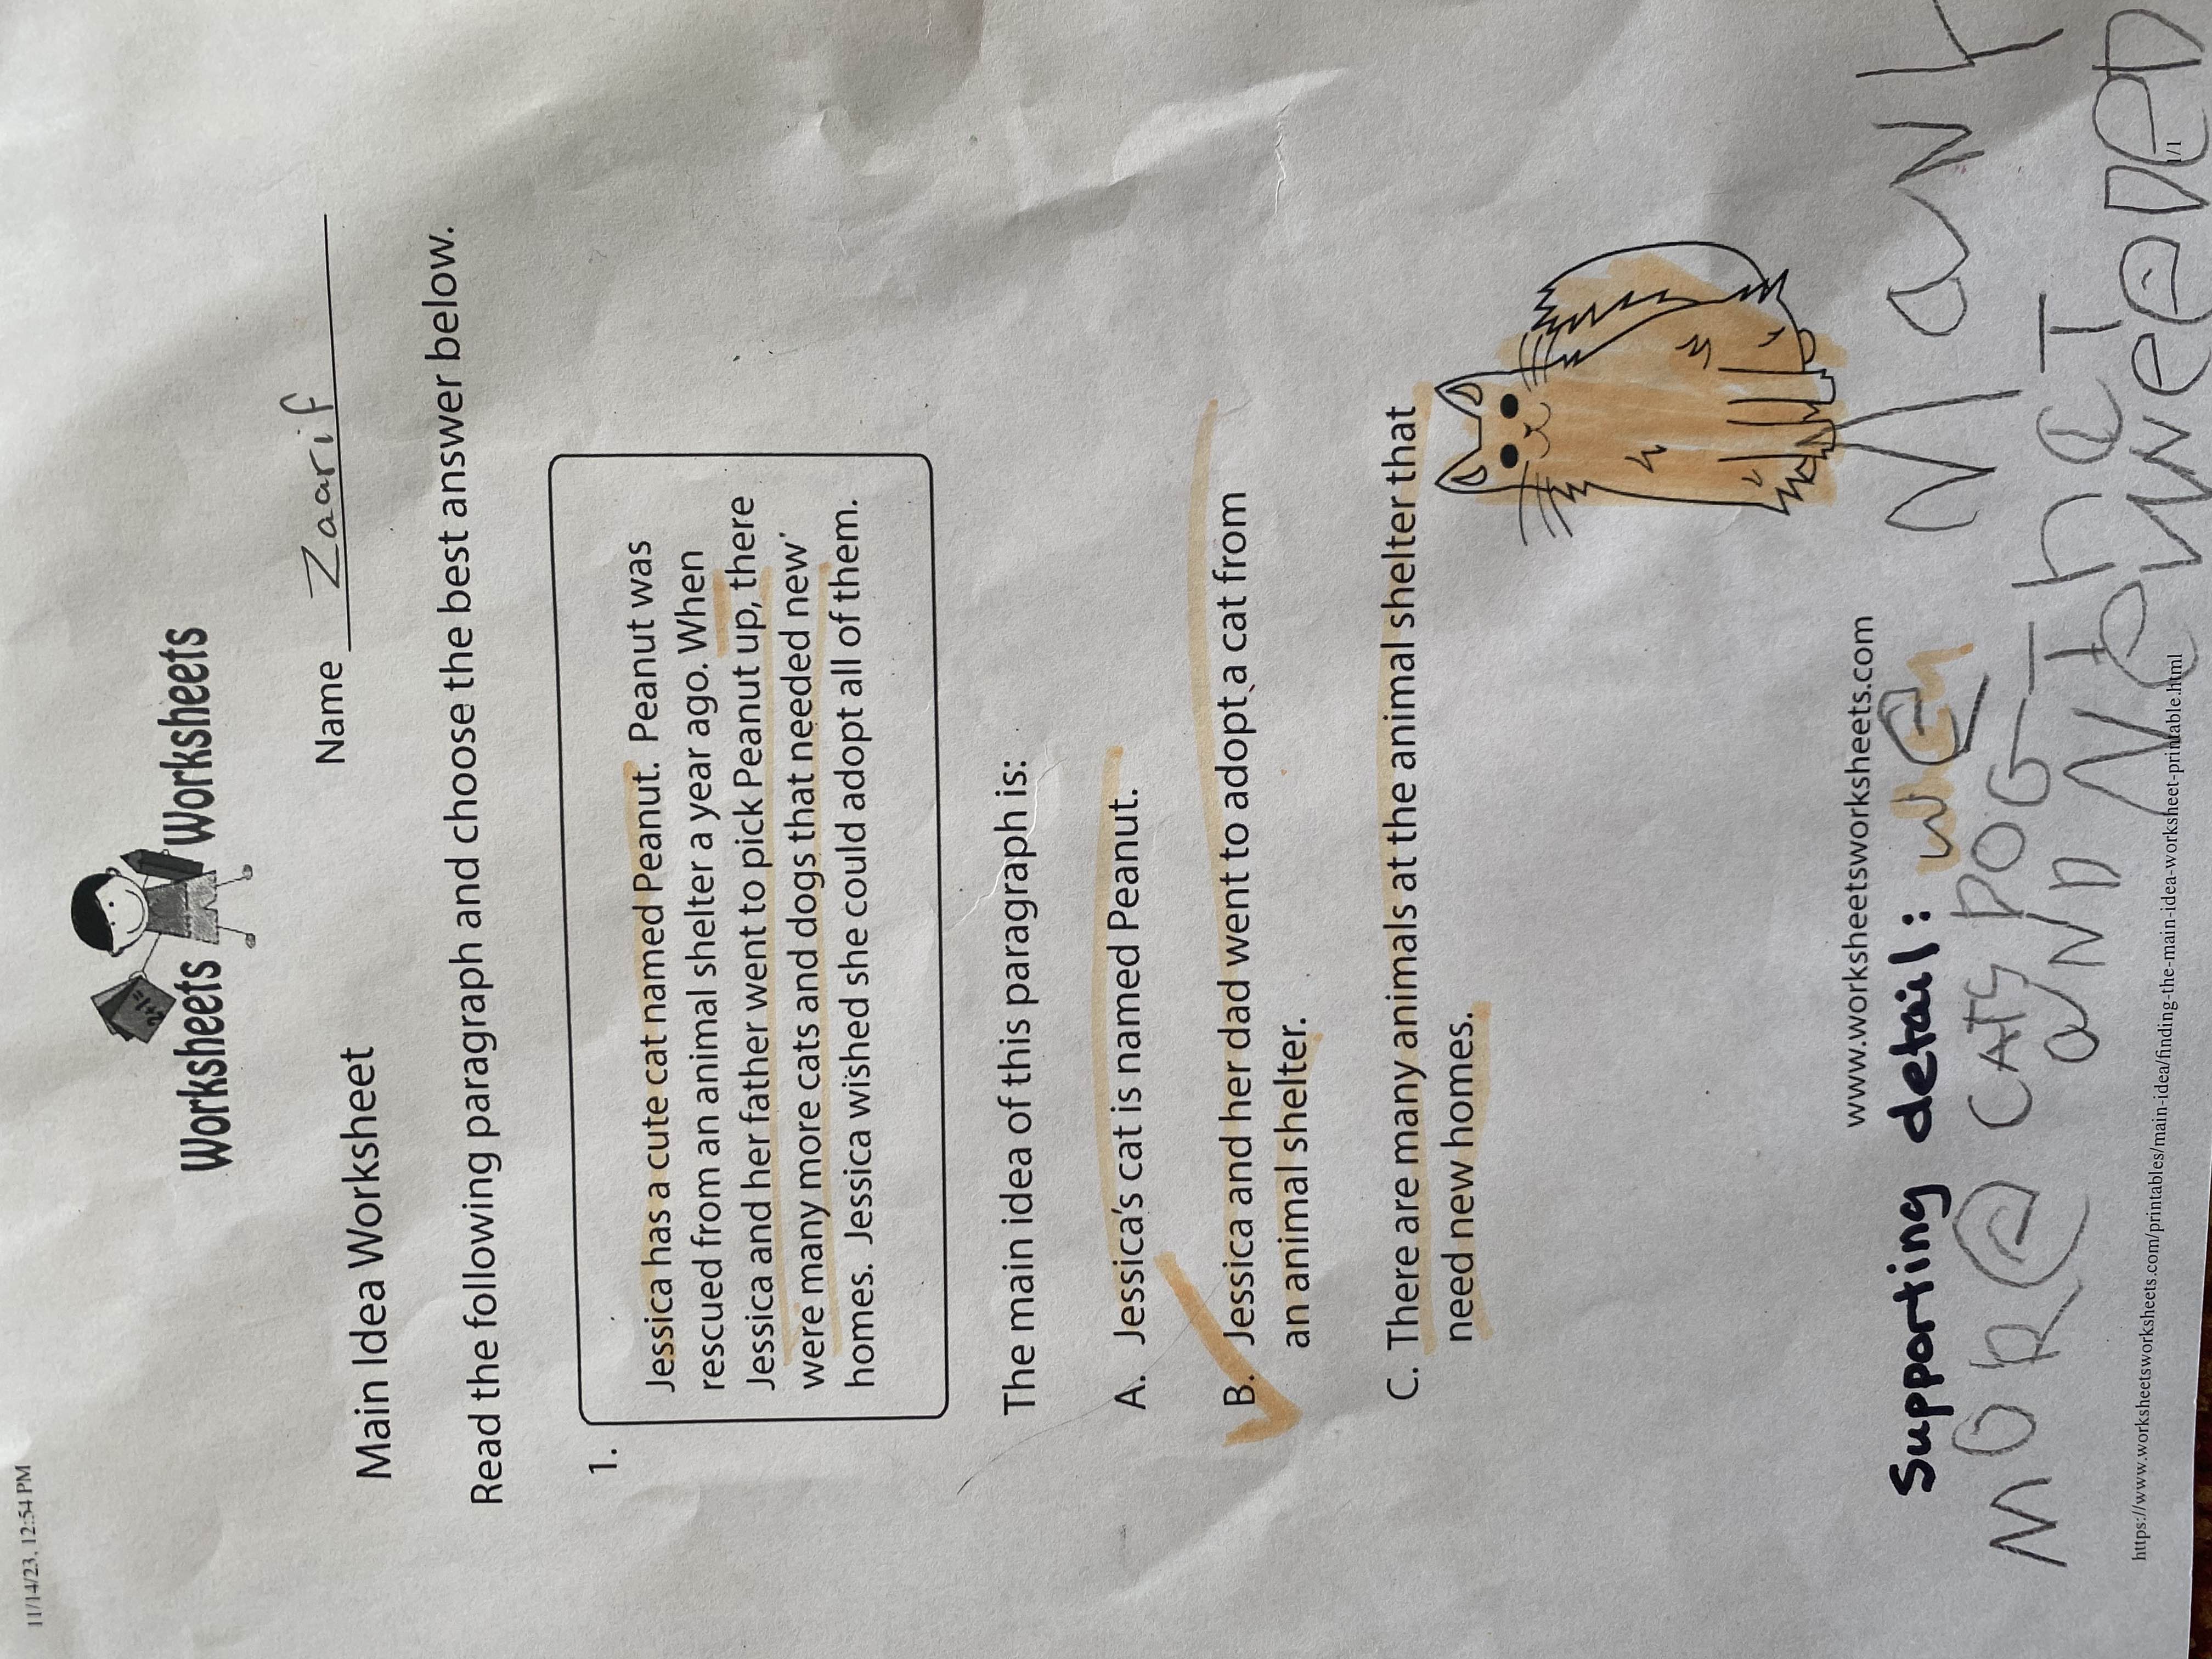 11/14/23, 12:54 PM
2+1=
Worksheets Worksheets
Name Zaarif
Main Idea Worksheet
Read the following paragraph and choose the best answer below.
1.
Jessica has a cute cat named Peanut. Peanut was
rescued from an animal shelter a year ago. When
Jessica and her father went to pick Peanut up, there
were many more cats and dogs that needed new
homes. Jessica wished she could adopt all of them.
The main idea of this paragraph is:
A. Jessica's cat is named Peanut.
B. Jessica and her dad went to adopt a cat from
an animal shelter.
C. There are many animals at the animal shelter that
need new homes.
www.worksheetsworksheets.com
Supporting detail: we MaNY
MORe CATS DOG ThaT
aND New NeeDeD
https://www.worksheetsworksheets.com/printables/main-idea/finding-the-main-idea-worksheet-printable.html
1/1